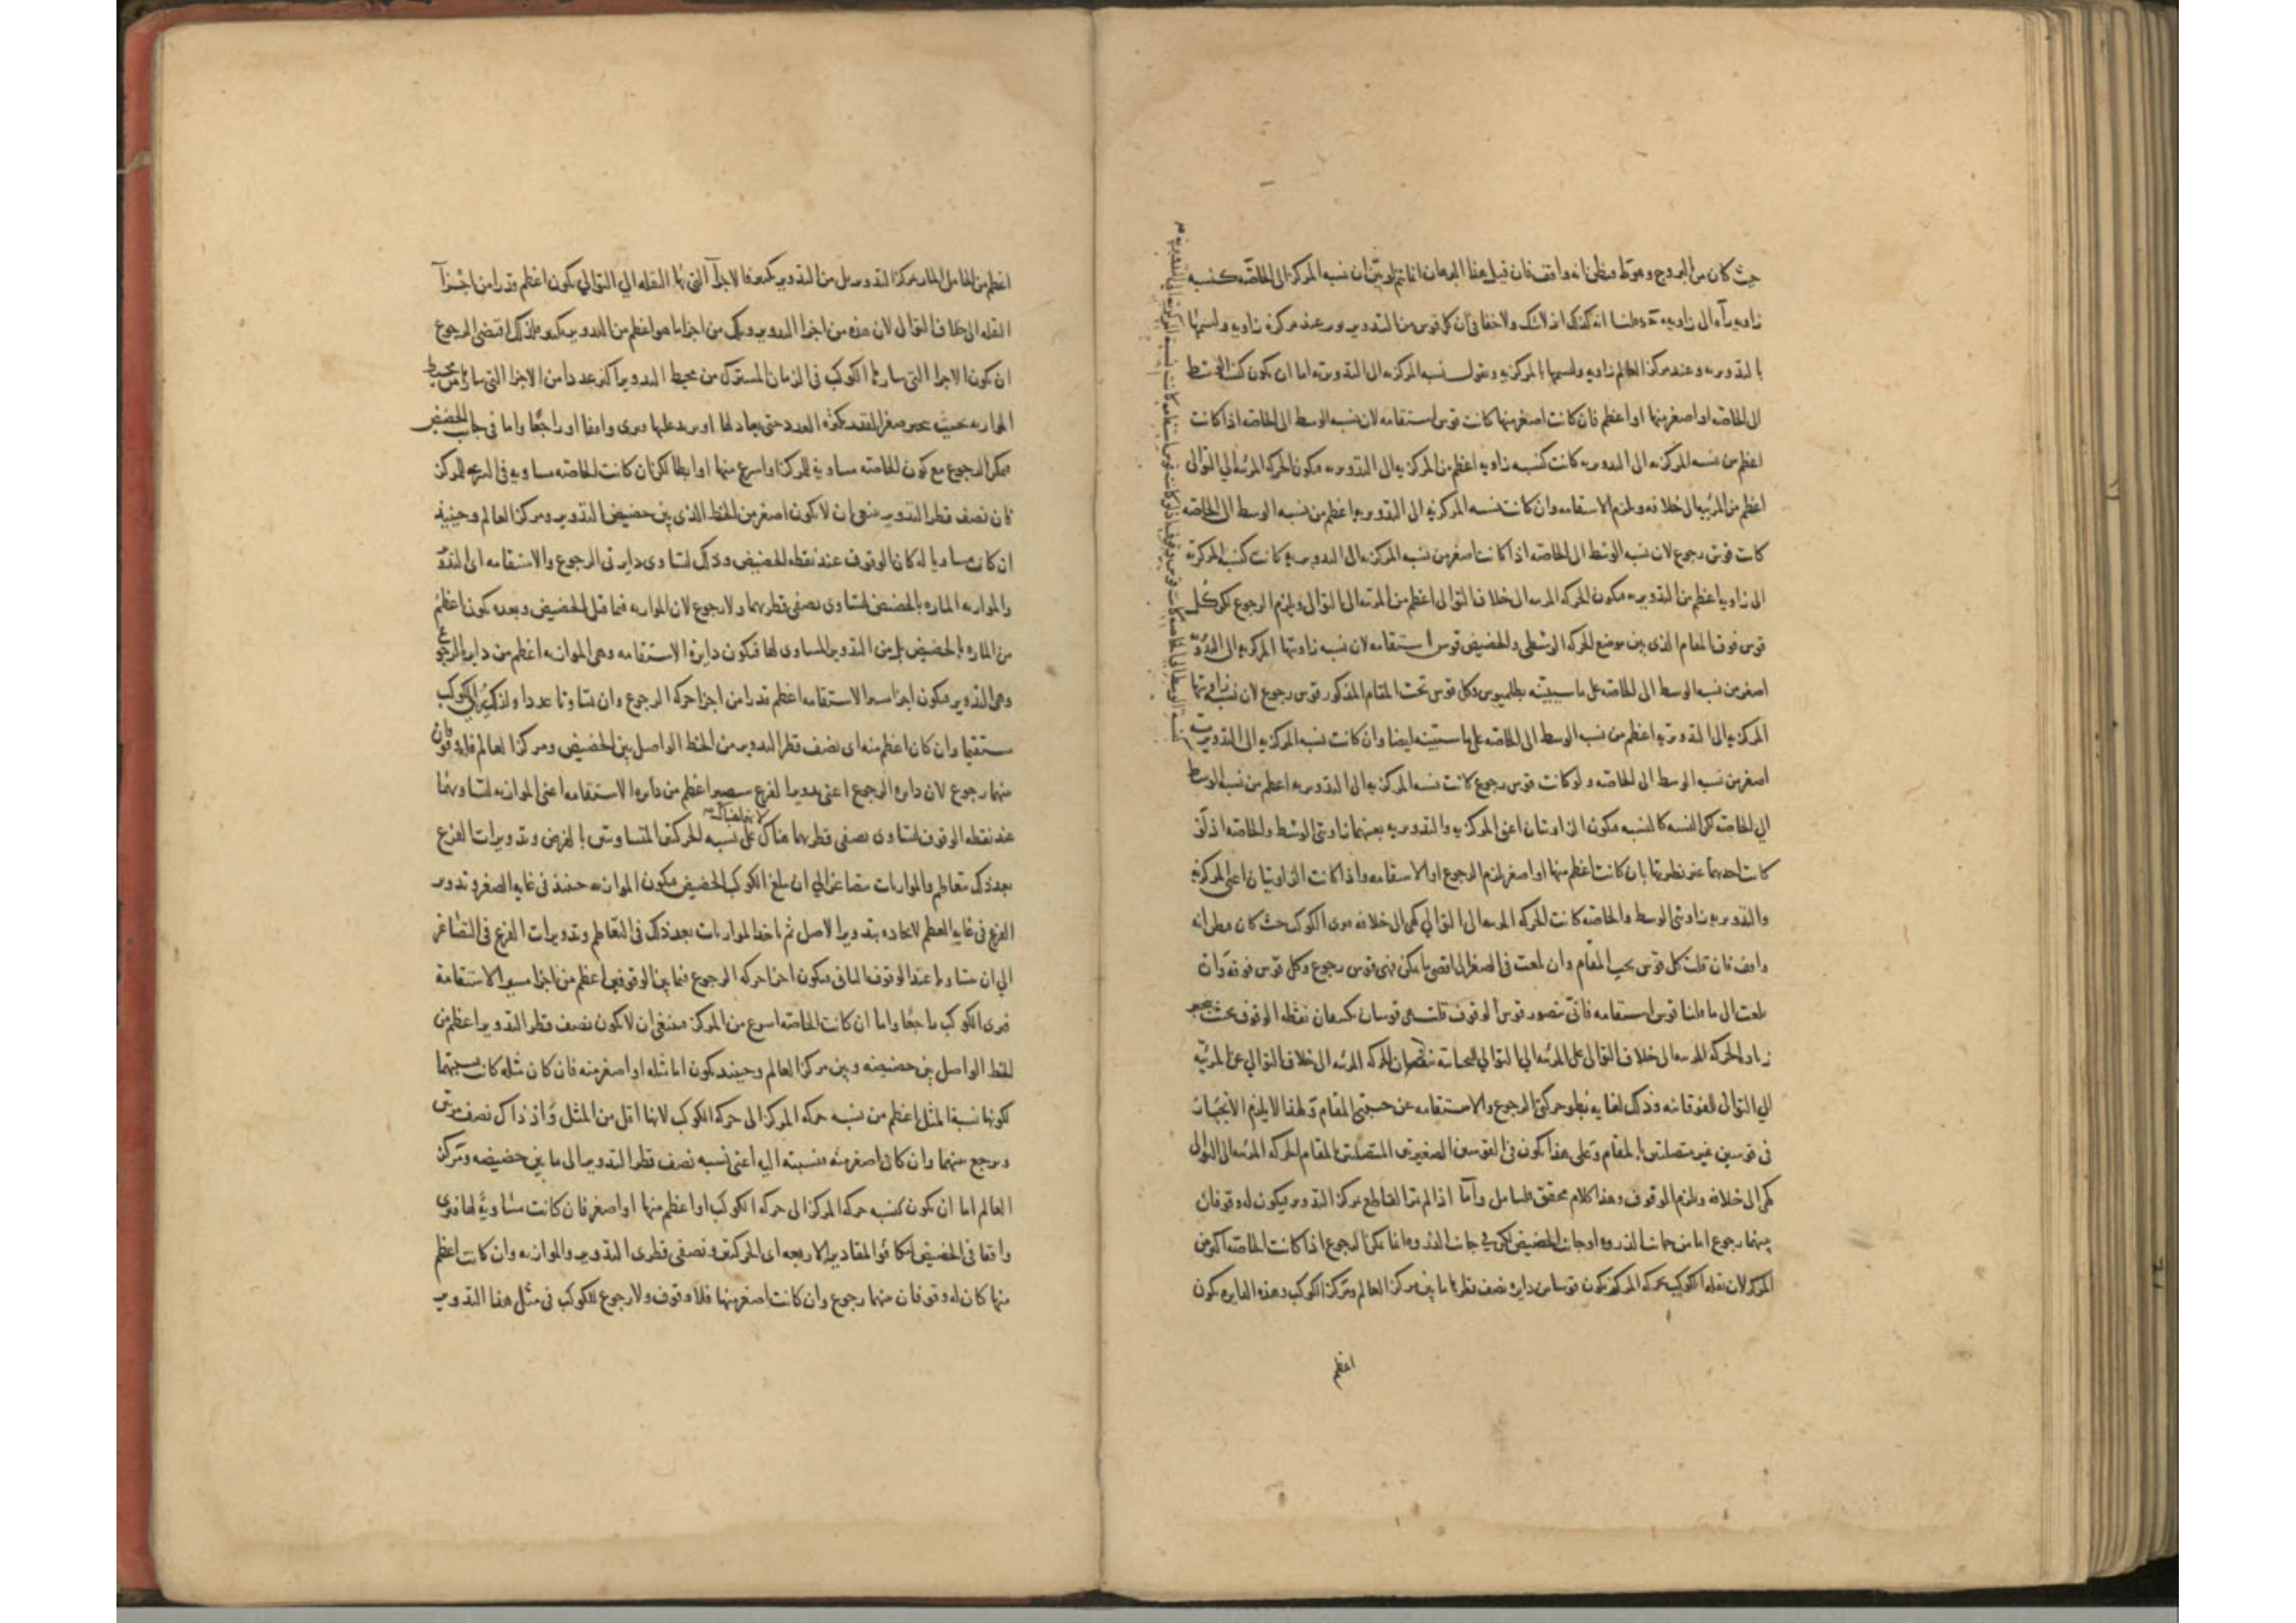 حيث كان من البروج وهوتط فيظن انه واقف فان قيل هذا البرهان انما يتم لو بين ان نسبه المركز الى الخاصّه كنسبه
زاويه رآه الى زاويه قلنا انه كذلك اذ لاشك ولا خفا فى ان كل قوس من التدوير يوتر عند مركزه زاويه ولنسمها
بالتدويريه وعند مركز العالم زاويه ولنسمها بالمركزيه ونقول نسبه المركزيه الى التدويريه اما ان يكون كنسبه الوسط
الى الخاصه او اصغر منها او اعظم فان كانت اصغر منها كانت قوس استقامه لان نسبه الوسط الى الخاصه اذا كانت
اعظم من نسبه المركزيه الى التدويريه كانت كنسبه زاويه اعظم من المركزيه الى التدويريه فيكون الحركه المرئيه الى التوالى
اعظم من المرئيه الى خلافه ويلزم الاستقامه وان كانت نسبه المركزيه الى التدويريه اعظم من نسبه الوسط الى الخاصه
كانت قوس رجوع لان نسبه الوسط الى الخاصه اذا كانت اصغر من نسبه المركزيه الى التدويريه كانت كنسبه المركزيه
الى زاويه اعظم من التدويريه فيكون الحركه المرئيه الى خلاف التوالى اعظم من المرئيه الى التوالى ويلزم الرجوع لكن كل
قوس فوق المقام الذى بين موضع الحركه الوسطى والحضيض قوس استقامه لان نسبه زاويتها المركزيه الى التدويريه
اصغر من نسبه الوسط الى الخاصه على ما سيبينه بطلميوس وكل قوس تحت المقام المذكور قوس رجوع لان نسبه زاويتها
المركزيه الى التدويريه اعظم من نسبه الوسط الى الخاصه على ما ستبينه ايضا وان كانت نسبه المركزيه الى التدويريه
اصغر من نسبه الوسط الى الخاصه ولو كانت قوس رجوع كانت نسبه المركزيه الى التدويريه اعظم من نسبه الوسط
الى الخاصه لكن النسبه كالنسبه فيكون الزاويتان اعنى المركزيه والتدويريه بعينهما زاويتى الوسط والخاصه اذ لو
كانت احديهما غير نظيرتها بان كانت اعظم منها او اصغر لزم الرجوع او الاستقامه واذا كانت الزاويتان اعنى المركزيه
والتدويريه زاويتى الوسط والخاصه كانت الحركه المرئيه الى التوالى كهى الى خلافه فيرى الكوكب حيث كان فيظن انه
واقف فان قلت كل قوس تحت المقام وان بلغت فى الصغر الى اقصى ما يمكن فهى قوس رجوع وكل قوس فوقه وان
بلغت الى ما قلنا قوس استقامه فانّى يتصور قوس الوقوف قلت هى قوسان يكتنفان نقطه الوقوف بحيث
زياده الحركه المرئيه الى خلاف التوالى على المرئيه الى التوالى التحتانيه نقصان الحركه المرئيه الى خلاف التوالى عن المرئيّه
الى التوالى الفوقانيه وذلك لغايه بطو حركتى الرجوع والاستقامه عن جنبتى المقام ولهذا لايلزم
فى قوسين غير متصلتين بالمقام وعلى هذا يكون فى القوسين الصغيرتين المتصلتين بالمقام الحركه المرئيه الى التوالى
كهى الى خلافه ويلزم الوقوف وهذا كلام محقق فليتامل وامّا اذا لم القاطع مركز التدوير فيكون له وقوفان
بينهما رجوع اما من جانب الذروه او جانب الحضيض لكن فى جانب الذروه انما يمكن الرجوع اذا كانت الخاصه اكثر من
المركز لان نقله الكوكب بحركه المركز يكون قوسا من دايره نصف قطرها ما بين مركز العالم ومركز الكوكب وهذه الدايره يكون
اعظم
اعظم من الحامل المار بمركز التدوير بل من التدوير بكثير فالاجزآ التى بها النقله الى التوالى يكون اعظم قدرا من اجزآ
النقله الى خلاف التوالى لان هذه من اجزا التدوير وتلك من اجزا ما هو اعظم من التدوير بكثير فلذلك اقتضى الرجوع
ان يكون الاجزا التى سارها الكوكب فى الزمان المشترك من محيط التدوير اكثر عددا من الاجزا التى سارها من محيط
الموازيه بحيث يجبر صغر القدر بكثره العدد حتى يعادلها او يزيد عليها فيرى واقفا او راجعًا واما فى جانب الحضيض
فيمكن الرجوع مع كون الخاصه مساويه للمركز او اسرع منها او ابطا لكن ان كانت الخاصه مساويه فى السرعه للمركز
فان نصف قطر التدوير ينبغى ان لا يكون اصغر من الخط الذى بين حضيض التدوير ومركز العالم وحينئذ
ان كان مساويا له كان الوقوف عند نقطه الحضيض وذلك لتساوى دايرتى الرجوع والاستقامه اى التدوير
والموازيه الماره بالحضيض لتساوى نصفى قطريهما ولا رجوع لان الموازيه فيما قبل الحضيض وبعده يكون اعظم
من الماره بالحضيض بل من التدوير المساوى لها فيكون دايرة الاستقامه وهى الموازيه اعظم من دايره الرجوع
وهى التدوير فيكون اجزا سير الاستقامه اعظم قدرا من اجزا حركه الرجوع وان تساوتا عددا ولذلك يرى الكوكب
مستقيما وان كان اعظم منه اى نصف قطر التدوير من الخط الواصل بين الحضيض ومركز العالم فله وقوفان
بينهما رجوع لان دايره الرجوع اعنى تدوير الفرع يصير اعظم من دايره الاستقامه اعنى الموازيه لتساويهما
عند نقطه الوقوف لتساوى نصفى قطريهما هناك لانهما هناك على نسبه الحركتين المتساويتين بالفرض وتدويرات الفرع
بعد ذلك متعاظم والموازيات متصاغر الى ان يبلغ الكوكب الحضيض فيكون الموازيه حينئذ فى غايه الصغر وتدوير
الفرع فى غايه العظم لاتحاده بتدوير الاصل ثم ياخذ الموازيات بعد ذلك فى التعاظم وتدويرات الفرع فى التصاغر
الى ان يتساويا عند الوقوف الثانى فيكون اجزا حركه الرجوع فيما بين الوقوفين اعظم من اجزا مسير الاستقامة
فيرى الكوكب راجعًا واما ان كانت الخاصه اسرع من المركز فينبغى ان لا يكون نصف قطر التدوير اعظم من
الخط الواصل بين حضيضه وبين مركز العالم وحينئذ يكون اما مثله او اصغر منه فان كان مثله كانت نسبتهما
لكونها نسبة المثل اعظم من نسبه حركه المركز الى حركه الكوكب لانها اقل من المثل واذ ذاك نصف مرتين
ويرجع بينهما وان كان اصغر منه فنسبته اليه اعنى نسبه نصف قطر التدوير الى ما بين حضيضه ومركز
العالم اما ان يكون كنسبه حركه المركز الى حركه الكوكب او اعظم منها او اصغر فان كانت مساويةً لها فيرى
واقفا فى الحضيض لتكافو المقادير الاربعه اى الحركتين ونصفى قطرى التدوير والموازيه وان كانت اعظم
منها كان له وقوفان بينهما رجوع وان كانت اصغر منها فلا وقوف ولا رجوع للكوكب فى مثل هذا التدوير